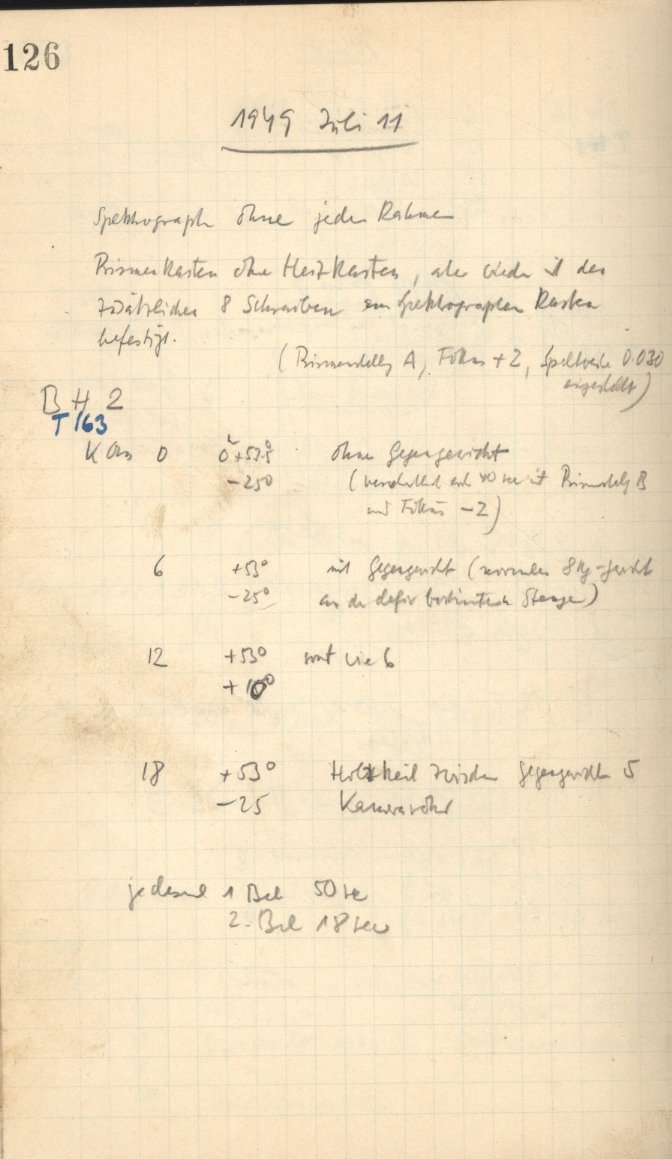 126
1949 Juli 11
Spektrograph ohne jeden Rahmen
Prismenkasten ohne Heizkasten, aber wieder mit den
zusätzlichen 8 Schrauben am Spektrographen Kasten
befestigt.
(Prismenstellg A, Fokus +2, Spaltweite 0.030
eingestellt)
B H 2
T 163
K Ons 0 0 +52.5 ohne Gegengewicht
-25° ( 40 sec mit Prismenstellg B
und Fokus -2)
6 +53° mit Gegengewicht (normales 8 kg-Gewicht
-25° an der dafür bestimmten Stange)
12 +53° sonst wie 6
+10°
18 +53° Holzkeil zwischen Gegengewicht
-25 Kamerarohr
jedesmal 1 Bel 50 sec
2. Bel 18 sec